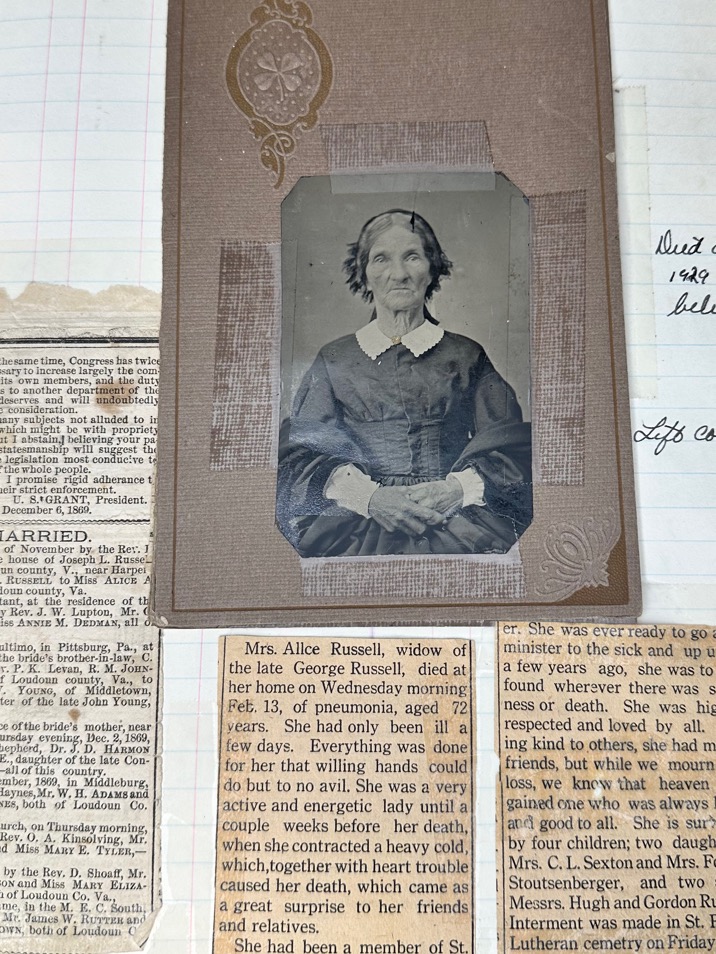 the same time, Congress has twice
ssary to increase largely the com-
its own members, and the duty
s to another department of the
deserves and will undoubtedly
e consideration.
many subjects not alluded to in
which might be with propriety
ut I abstain, believing your pa-
statesmanship will suggest the
e legislation most conducive to
f the whole people.
I promise rigid adherance t
heir strict enforcement.
U. S. GRANT, President.
December 6, 1869.
MARRIED.
of November by the Rev. J
e house of Joseph L. Russel
un county, V., near Harper
. RUSSELL to Miss ALICE A
doun county, Va.
tant, at the residence of th
y Rev. J. W. Lupton, Mr. C
iss ANNIE M. DEDMAN, all o
ultimo, in Pittsburg, Pa., at
the bride's brother-in-law, C.
v. P. K. Levan, R. M. JOHN-
f Loudoun county, Va., to
. YOUNG, of Middletown,
ter of the late John Young,
ce of the bride's mother, near
ursday evening, Dec. 2, 1869,
hepherd, Dr. J. D. HARMON
E., daughter of the late Con-
—all of this country.
ember, 1869, in Middleburg,
Haynes, Mr. W. H. ADAMS and
NES, both of Loudoun Co.
urch, on Thursday morning,
Rev. O. A. Kinsolving, Mr.
d Miss MARY E. TYLER,—
by the Rev. D. Shoaff, Mr.
SON and Miss MARY ELIZA-
h of Loudoun Co. Va.,
me, in the M. E. C. South,
Mr. James W. RUTTER and
OWN, both of Loudoun C
Mrs. Alice Russell, widow of
the late George Russell, died at
her home on Wednesday morning
Feb. 13, of pneumonia, aged 72
years. She had only been ill a
few days. Everything was done
for her that willing hands could
do but to no avil. She was a very
active and energetic lady until a
couple weeks before her death,
when she contracted a heavy cold,
which, together with heart trouble
caused her death, which came as
a great surprise to her friends
and relatives.
She had been a member of St.
er. She was ever ready to go a
minister to the sick and up u
a few years ago, she was to
found wherever there was s
ness or death. She was hig
respected and loved by all.
ing kind to others, she had m
friends, but while we mourn
loss, we know that heaven
gained one who was always l
and good to all. She is sur
by four children; two daugh
Mrs. C. L. Sexton and Mrs. Fe
Stoutsenberger, and two
Messrs. Hugh and Gordon Ru
Interment was made in St. P
Lutheran cemetry on Friday
Died
1929
beli
Left co